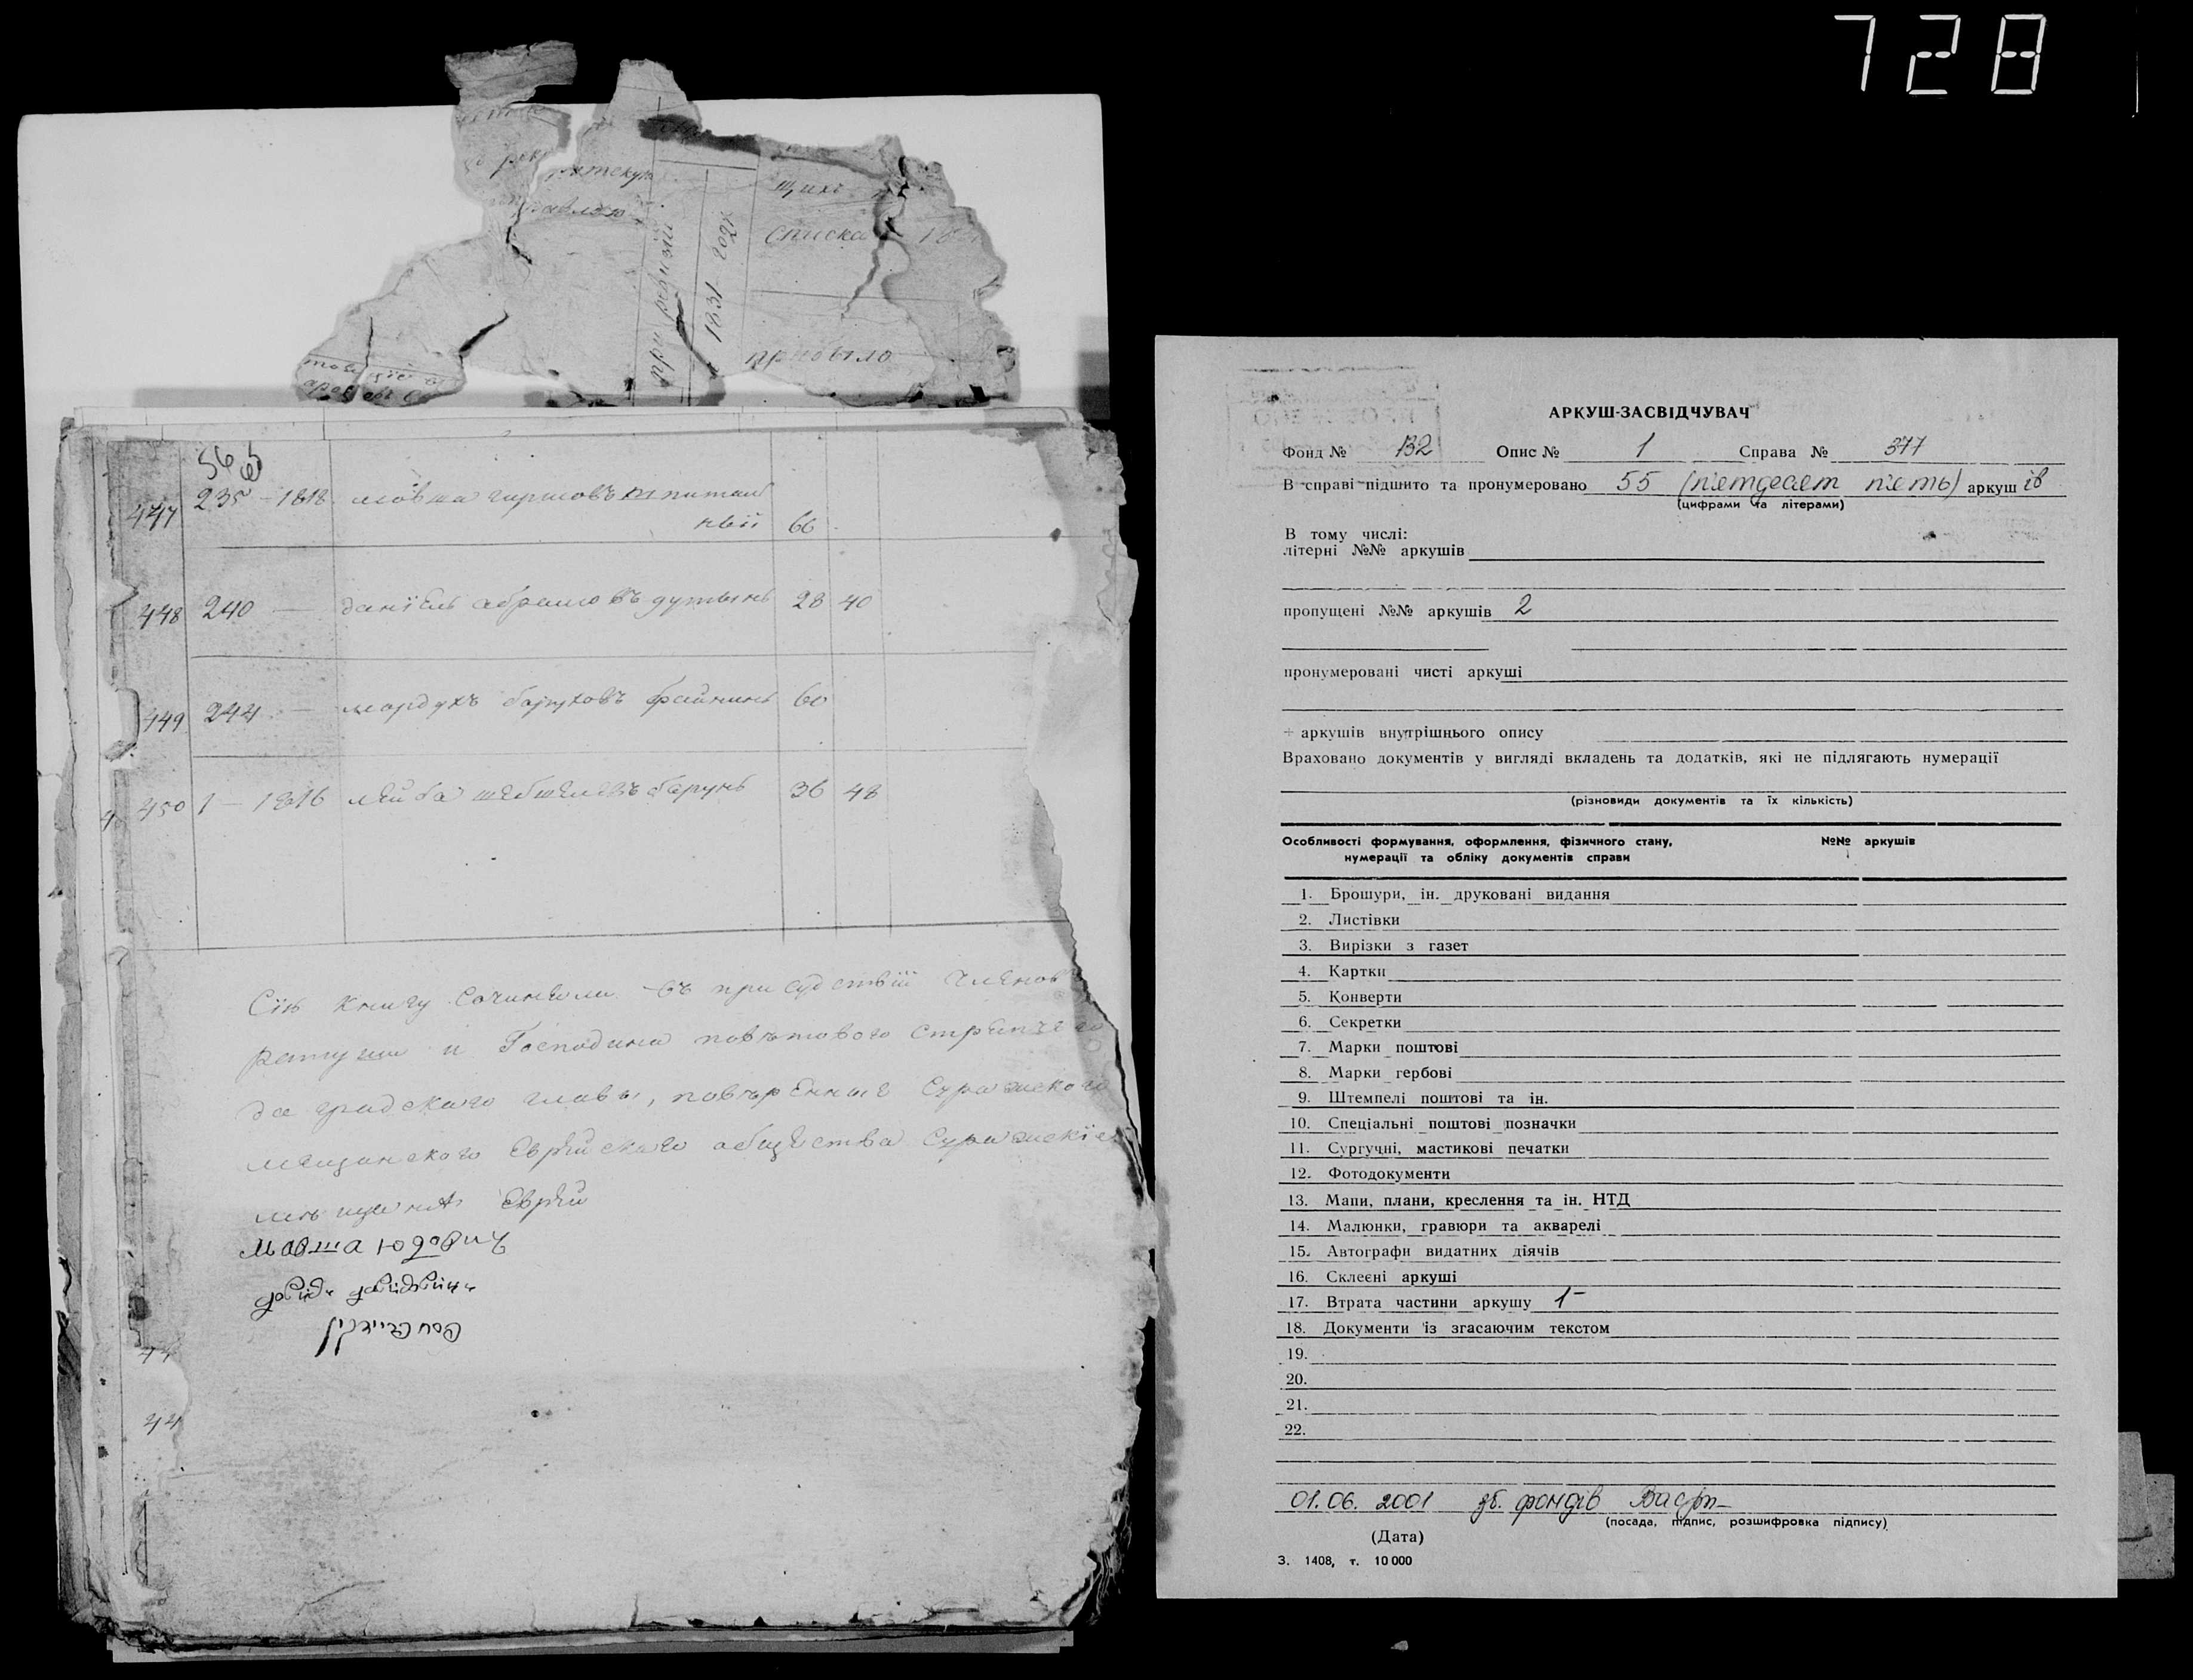 728
при ревизіи
1831 году
щихъ
списка
прибыло
56
447 235 – 1818 мовша гиршовъ 66
448 240 — данїель абрамовъ 28 40
449 244 — мордухъ боруховъ файнинъ 60
450 1 – 1816 лейба 36 48
Сїю книгу Сочиняли въ присудствїи членовъ
ратуши и Господина повѣтового стряпчего
да градскаго главы, повѣренные Суражского
мещанского Еврейскаго общества Суражскїе
мѣщанѣ Еврей
мовша юдович
44
АРКУШ-ЗАСВІДЧУВАЧ
Фонд № 132 Опис № 1 Справа № 377
В справі підшито та пронумеровано 55 (п'ятдесят п'ять) аркушів
(цифрами та літерами)
В тому числі:
літерні №№ аркушів
пропущені №№ аркушів 2
пронумеровані чисті аркуші
+ аркушів внутрішнього опису
Враховано документів у вигляді вкладень та додатків, які не підлягають нумерації
(різновиди документів та їх кількість)
Особливості формування, оформлення, фізичного стану, №№ аркушів
нумерації та обліку документів справи
1. Брошури, ін. друковані видання
2. Листівки
3. Вирізки з газет
4. Картки
5. Конверти
6. Секретки
7. Марки поштові
8. Марки гербові
9. Штемпелі поштові та ін.
10. Спеціальні поштові позначки
11. Сургучні, мастикові печатки
12. Фотодокументи
13. Мапи, плани, креслення та ін. НТД
14. Малюнки, гравюри та акварелі
15. Автографи видатних діячів
16. Склеєні аркуші
17. Втрата частини аркушу 1-
18. Документи із згасаючим текстом
19.
20.
21.
22.
01.06. 2001 зб. фондів
(посада, підпис, розшифровка підпису)
(Дата)
З. 1408, т. 10 000